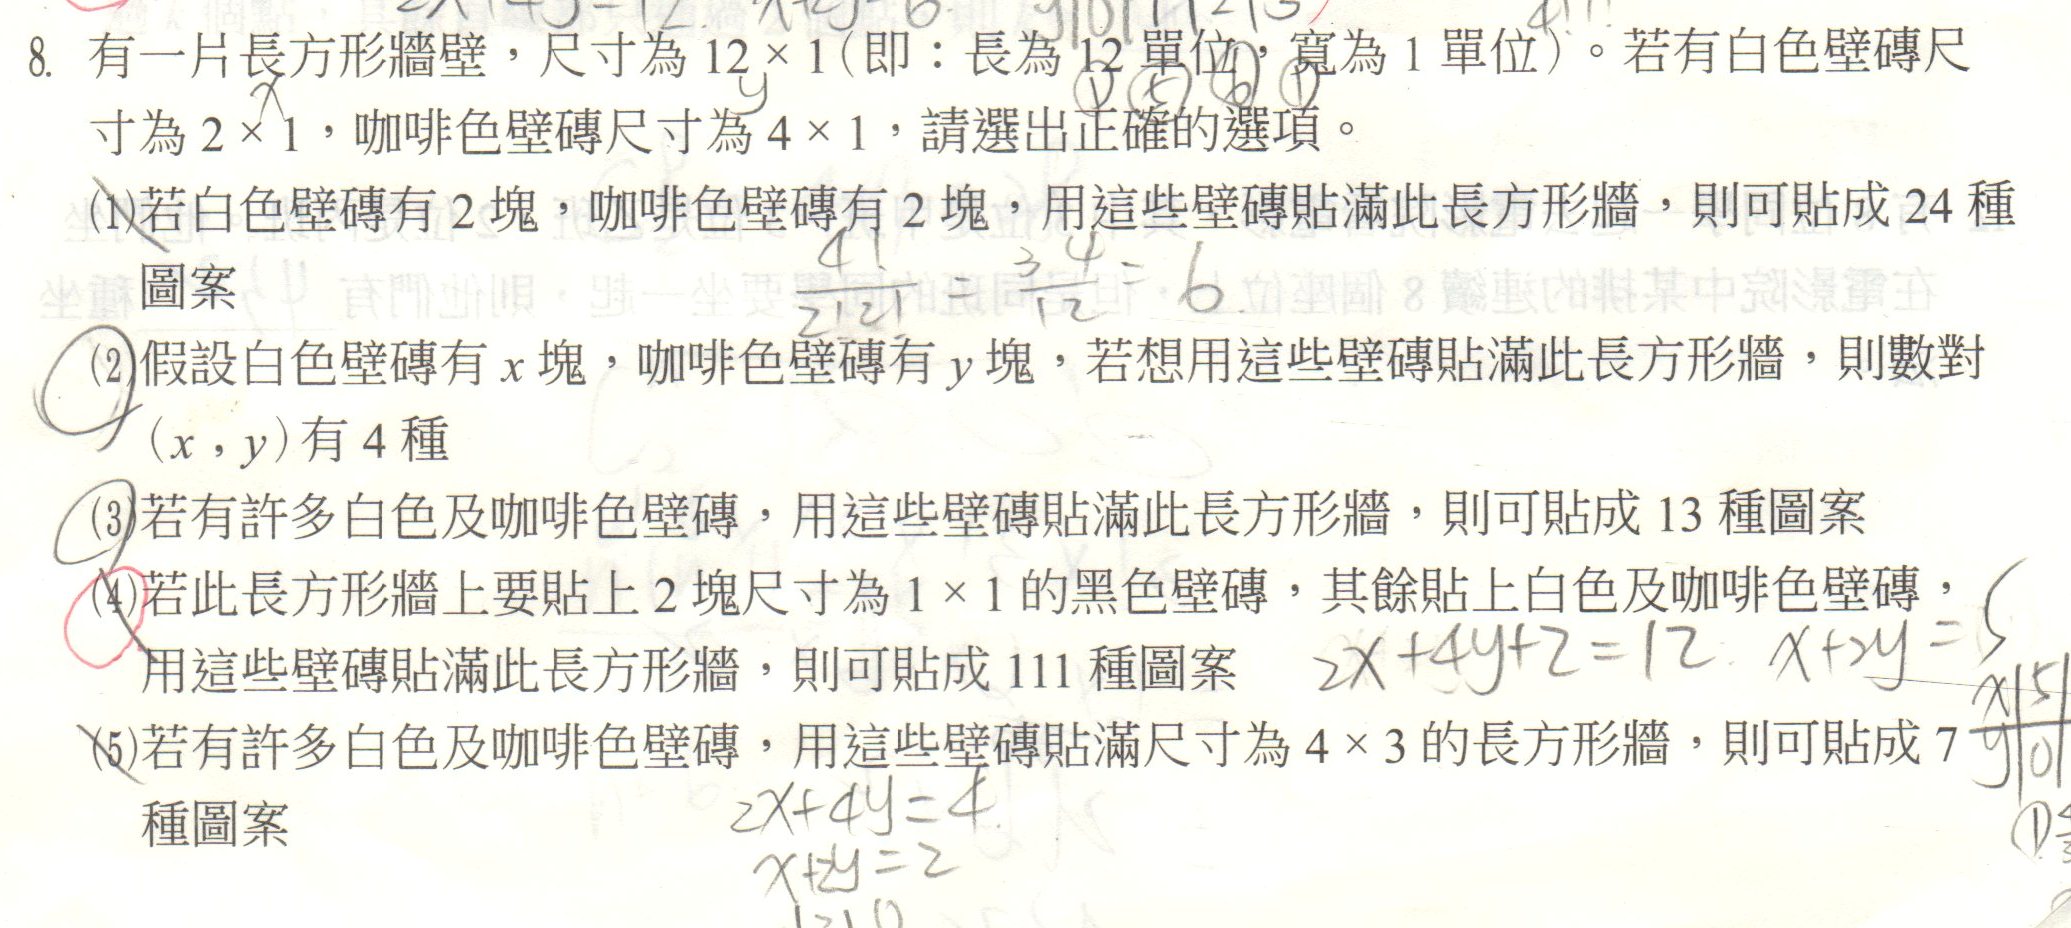 2x+4y=12. x+2y=6
8. 有一片長方形牆壁，尺寸為 12 × 1（即：長為 12 單位，寬為 1 單位）。若有白色壁磚尺
x y ① ⑤ ⑥ ①
寸為 2 × 1，咖啡色壁磚尺寸為 4 × 1，請選出正確的選項。
(1)若白色壁磚有 2 塊，咖啡色壁磚有 2 塊，用這些壁磚貼滿此長方形牆，則可貼成 24 種
圖案
4!/2!2! = 6
(2)假設白色壁磚有 x 塊，咖啡色壁磚有 y 塊，若想用這些壁磚貼滿此長方形牆，則數對
（x，y）有 4 種
(3)若有許多白色及咖啡色壁磚，用這些壁磚貼滿此長方形牆，則可貼成 13 種圖案
(4)若此長方形牆上要貼上 2 塊尺寸為 1 × 1 的黑色壁磚，其餘貼上白色及咖啡色壁磚，
用這些壁磚貼滿此長方形牆，則可貼成 111 種圖案
2x+4y+2=12. x+2y=5
x|5|
y|0|
(5)若有許多白色及咖啡色壁磚，用這些壁磚貼滿尺寸為 4 × 3 的長方形牆，則可貼成 7
種圖案
2x+4y=4.
x+2y=2